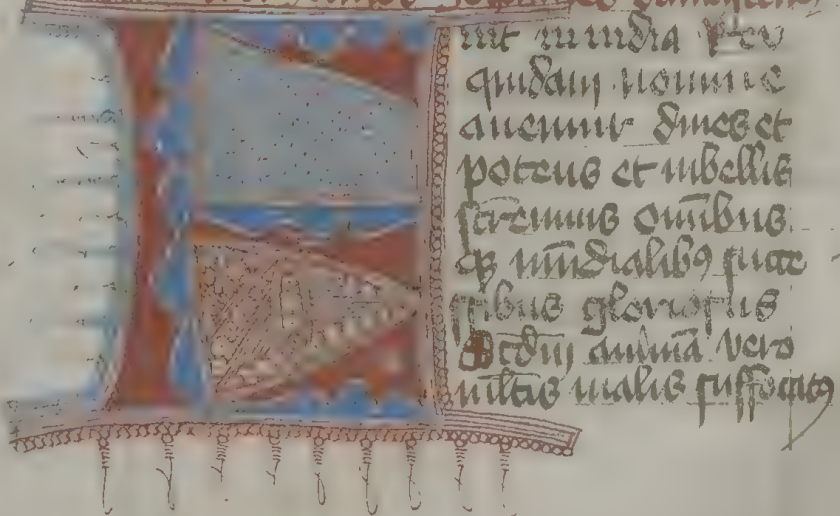 in india
quidam nomine
auennir diues et
potens et inbellis
strenuus om̄ibus
qꝫ mūdialibꝰ succe
ssibus gloriosus
Scd̄m animā vero
ml̄tis malis suffocatꝰ